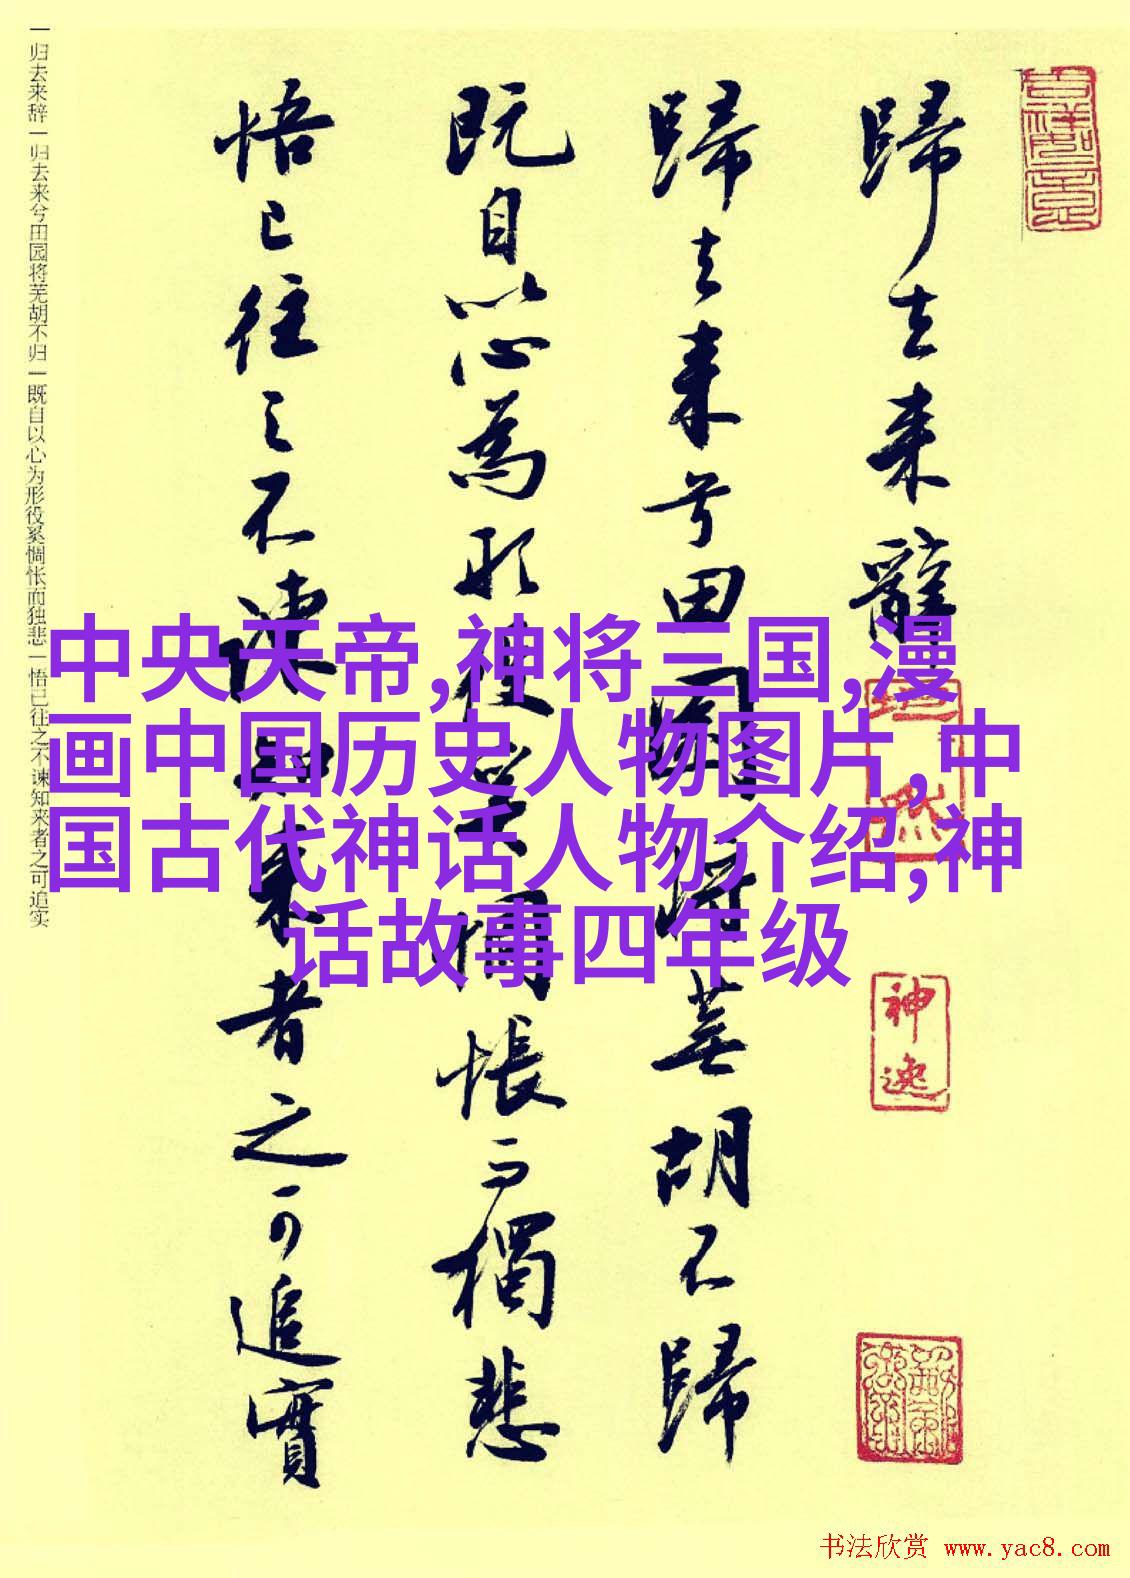 歸去来辭
歸去来兮田園將蕪胡不歸
既自以心為形役奚惆悵而獨悲
悟已往之不諫知来者之可追實
一归去来辞一归去来兮田园将芜胡不归一既自以心为形役奚惆怅而独悲一悟已往之不谏知来者之可追实
中央天帝,神将三国,漫
画中国历史人物图片,中
国古代神话人物介绍,神
话故事四年级
神逸
书法欣赏 www.yac8.com